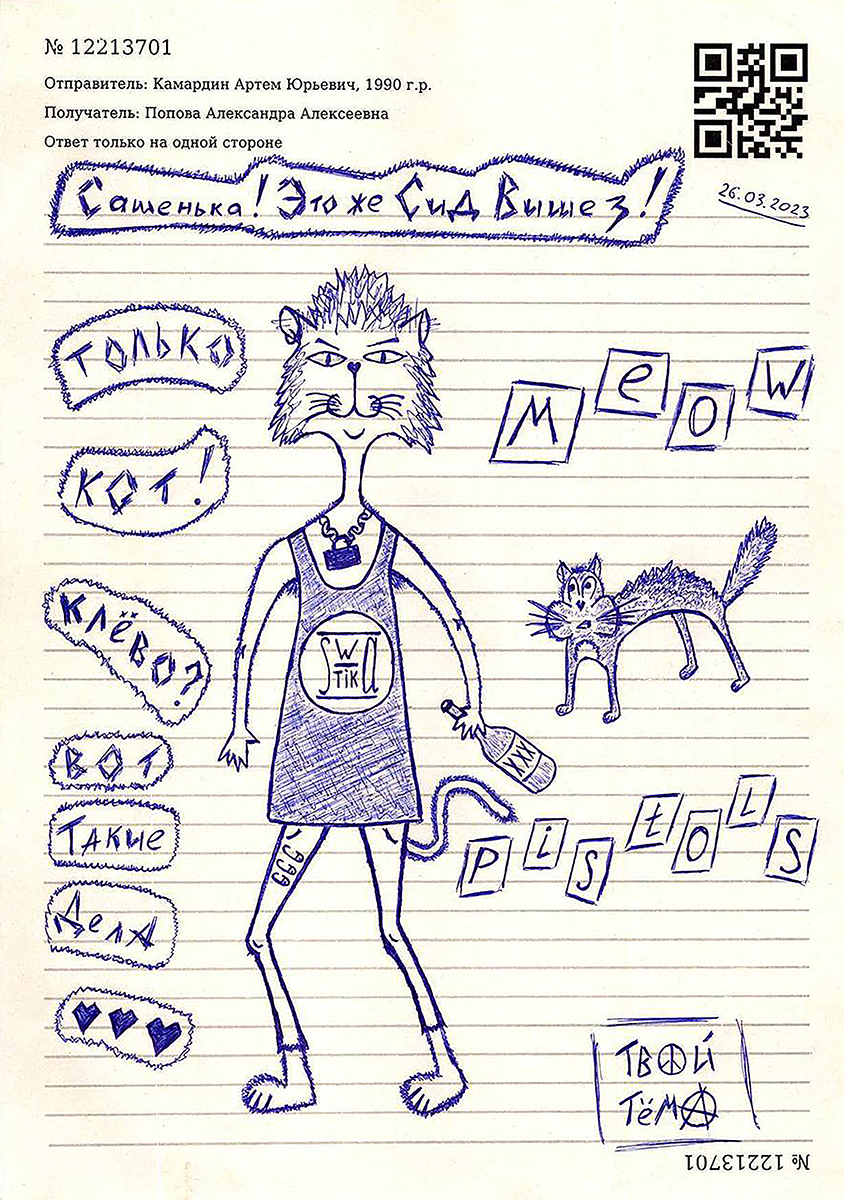 № 12213701
Отправитель: Камардин Артем Юрьевич, 1990 г.р.
Получатель: Попова Александра Алексеевна
Ответ только на одной стороне
Сашенька! Это же Сид Вишез!
26.03.2023
только
кот!
клёво?
вот
такие
дела
meow
swa
stik
XXX
999
pistols
твой
тёма
№ 12213701